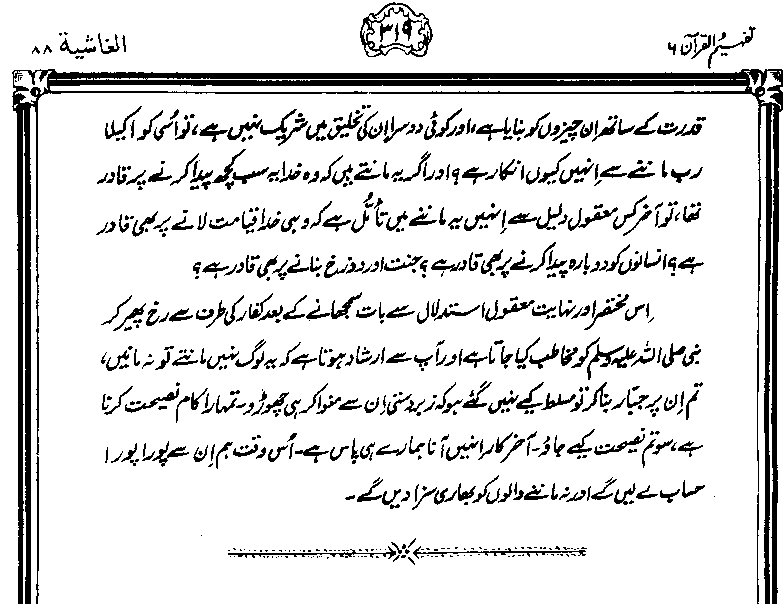 تفہیم القرآن ۶
۳۱۹
الغاشیة ۸۸
قدرت کے ساتھ ان چیزوں کو بنایا ہے، اور کوئی دوسرا اِن کی تخلیق میں شریک نہیں ہے، تو اُسی کو اکیلا
رب ماننے سے اِنہیں کیوں انکار ہے؟ اور اگر یہ مانتے ہیں کہ وہ خدا یہ سب کچھ پیدا کرنے پر قادر
تھا، تو آخر کس معقول دلیل سے اِنہیں یہ ماننے میں تأمُّل ہے کہ وہی خدا قیامت لانے پر بھی قادر
ہے؟ انسانوں کو دوبارہ پیدا کرنے پر بھی قادر ہے؟ جنت اور دوزخ بنانے پر بھی قادر ہے؟
اِس مختصر اور نہایت معقول استدلال سے بات سمجھانے کے بعد کفار کی طرف سے رخ پھیر کر
نبی صلی اللہ علیہ وسلم کو مخاطب کیا جاتا ہے اور آپ سے ارشاد ہوتا ہے کہ یہ لوگ نہیں مانتے تو نہ مانیں،
تم اِن پر جبّار بنا کر تو مسلط کیے نہیں گئے ہو کہ زبردستی اِن سے منوا کر ہی چھوڑو۔ تمہارا کام نصیحت کرنا
ہے، سو تم نصیحت کیے جاؤ۔ آخر کار اِنہیں آنا ہمارے ہی پاس ہے۔ اُس وقت ہم اِن سے پورا پورا
حساب لے لیں گے اور نہ ماننے والوں کو بھاری سزا دیں گے۔